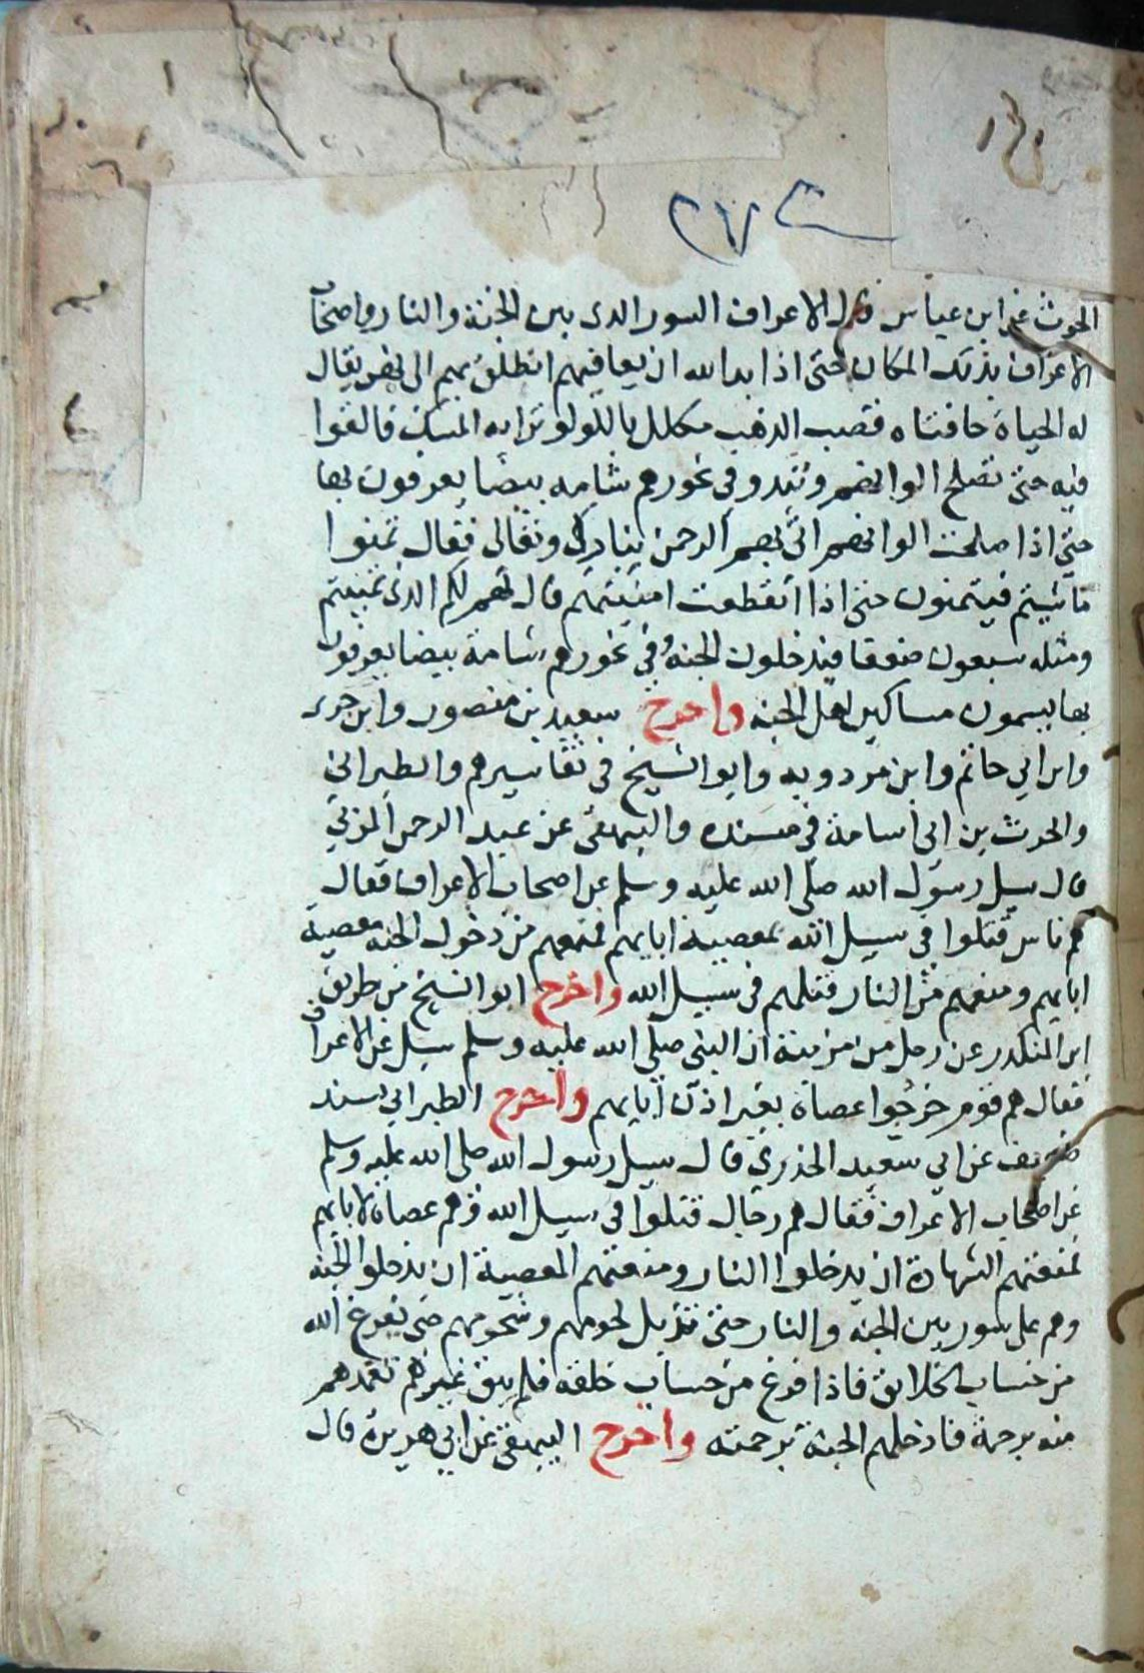 ٢٧٣
الحرث عن ابن عباس قال الاعراف السور الذى بين الجنة والنار واصحاب
الاعراف بذلك المكان حتى اذا بدا الله ان يعافيهم انطلق بهم الى نهر يقال
له الحياة حافتاه قصب الذهب مكلل باللولو ترابه المسك فالقوا
فيه حتى تصلح الوانهم وتبدو فى نحورهم شامه بيضا يعرفون بها
حتى اذا صلحت الوانهم اتى بهم الرحمن تبارك وتعالى فقال تمنوا
ما شيتم فيتمنون حتى اذا انقطعت امنيتهم قال لهم لكم الذى تمنيتم
ومثله سبعون ضعفا فيدخلون الجنة وفى نحورهم شامة بيضا يعرفون
بها يسمون مساكين اهل الجنة واخرج سعيد بن منصور وابن جرير
وابن ابي حاتم وابن مردويه وابو الشيخ فى تفاسيرهم والطبرانى
والحرث بن ابى اسامة فى مسنده والبيهقى عن عبد الرحمن المزنى
قال سيل رسول الله صلى الله عليه وسلم عن اصحاب الاعراف فقال
هم ناس قتلوا فى سبيل الله بمعصية ابايهم فمنعهم من دخول الجنة معصية
ابايهم ومنعهم من النار قتلهم فى سبيل الله واخرج ابو الشيخ من طريق
ابن المنكدر عن رجل من مزينة ان النبى صلى الله عليه وسلم سيل عن الاعراف
فقال هم قوم خرجوا عصاة بغير اذن ابايهم واخرج الطبرانى بسند
ضعيف عن ابي سعيد الخدرى قال سيل رسول الله صلى الله عليه وسلم
عن اصحاب الاعراف فقال هم رجال قتلوا فى سبيل الله وهم عصاة لابايهم
فمنعتهم الشهادة ان يدخلوا النار ومنعتهم المعصية ان يدخلوا الجنة
وهم على سور بين الجنة والنار حتى تذبل لحومهم وشحومهم حتى يفرغ الله
من حساب الخلايق فاذا فرغ من حساب خلقه فلم يبق غيرهم تغمدهم
منه برحمة فادخلهم الجنة برحمته واخرج البيهقى عن ابي هريرة قال